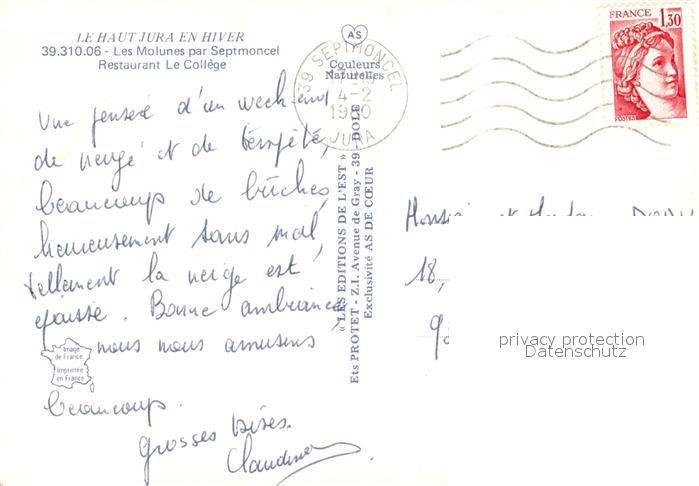 LE HAUT JURA EN HIVER
39.310.06 - Les Molunes par Septmoncel
Restaurant Le Collège
AS
Couleurs
Naturelles
39 SEPTMONCEL
4-2
1980
JURA
FRANCE
1,30
POSTES
Une pensée d'un week-end
de neige et de tempête,
beaucoup de bûches,
heureusement sans mal,
tellement la neige est
épaisse. Bonne ambiance,
nous nous amusons
beaucoup.
Grosses bises.
Claudine
Image
de France
Imprimée
en France
« LES EDITIONS DE L'EST »
Ets PROTET - Z.I. Avenue de Gray - 39 - DOLE
Exclusivité AS DE CŒUR
Monsieur et Madame
18,
privacy protection
Datenschutz